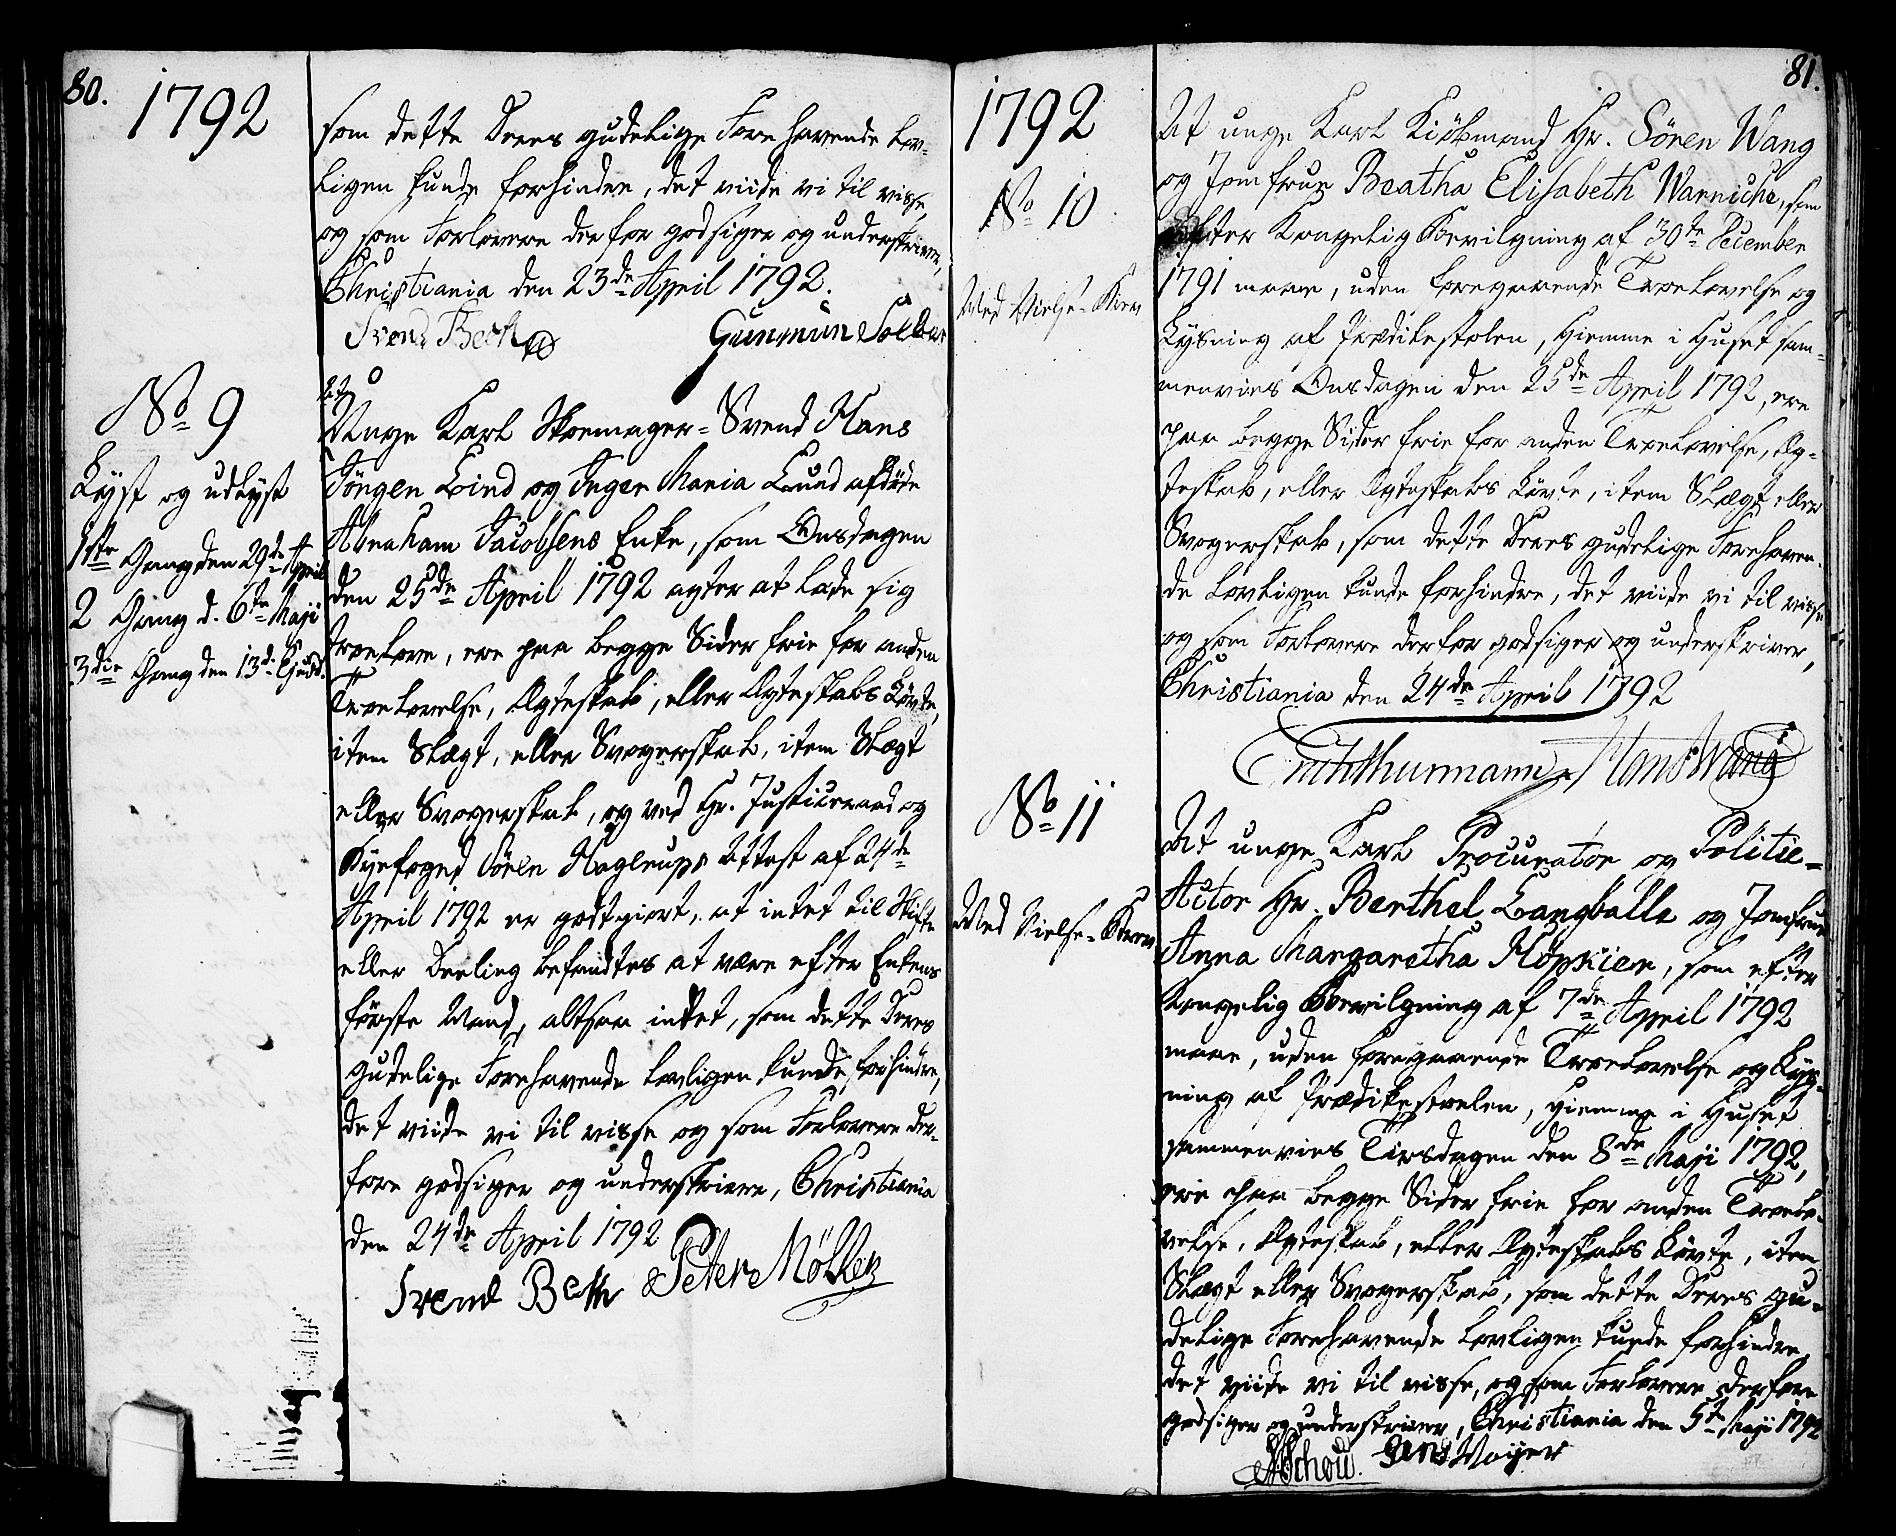 80.
1792
som dette Deres gudelige Forehavende lov-
ligen kunde forhindre, det viide vi til visse,
og som Forlovere derfor godsiger og underskriver,
Christiania den 23de April 1792.
Svend Beck Gunmun Solber
No 9
Lyst og udlyst
1ste Gang den 29de April
2 Gang d. 6te Maji
3die Gang den 13d.
At
Unge Karl Skoemager-Svend Hans
Jörgen Lind og Inger Maria Lund afdøde
Abraham Jacobsens Enke, som Onsdagen
den 25de April 1792 agter at lade sig
troelove, ere paa begge Sider frie for anden
Troelovelse, Ægteskab, eller Ægteskabs Løvte,
item Slægt, eller Svogerskab, item Slægt
eller Svogerskab, og ved Hr. Justiceraad og
Byefoged Sören Hagerups Attest af 24de
April 1792 er godtgiort, at intet til Skifte
eller Deeling befandtes at være efter Enkens
første Mand, altsaa intet, som dette Deres
gudelige Forehavende lovligen kunde forhindre,
det viide vi til visse og som Forlovere der-
fore godsiger og underskriver, Christiania
den 24de April 1792
Svend Beck Peter Møller
81.
1792
No 10
Med Vielse-Brev
At unge Karl Kiøbmand Hr. Sören Wang
og Jomfrue Beatha Elisabeth Warniche, som
efter Kongelig Bevilgning af 30te December
1791 maae, uden foregaaende Troelovelse og
Lysning af Prædikestolen, hiemme i Huset sam-
menvies Onsdagen den 25de April 1792, ere
paa begge Sider frie for anden Troelovelse, Æg-
teskab, eller Ægteskabs Løvte, item Slægt eller
Svogerskab, som dette Deres gudelige Forehaven-
de lovligen kunde forhindre, det viide vi til visse
og som Forlovere derfor godsiger og underskriver,
Christiania den 24de April 1792
Erich Thurmann Hans Wang
No 11
Med Vielse-Brev
At unge Karl Procurator og Politie-
Actor Hr. Berthel Langballe og Jomfrue
Anna Margaretha Höpkien, som efter
Kongelig Bevilgning af 7de April 1792
maae, uden foregaaende Troelovelse og Lys-
ning af Prædikestoelen, hiemme i Huset
sammenvies Tirsdagen den 8de Maji 1792,
ere paa begge Sider frie for anden Troelo-
velse, Ægteskab, eller Ægteskabs Løvte, item
Slægt eller Svogerskab, som dette Deres gu-
delige Forehavende lovligen kunde forhindre,
det viide vi til visse, og som Forlovere derfore
godsiger og underskriver, Christiania den 5te Maji 1792
Schou. Jens Moijer